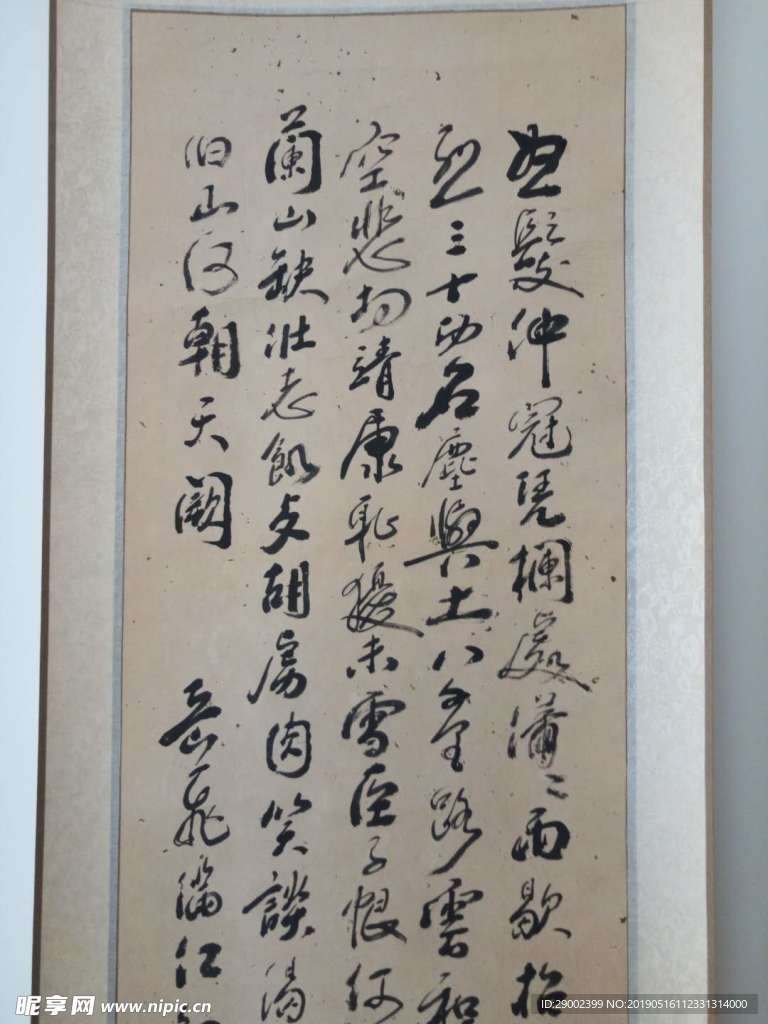 怒髮冲冠凭欄處潇〻雨歇抬
烈三十功名塵與土八千里路雲和
空悲切靖康恥猶未雪臣子恨何
蘭山缺壮志飢爻胡虜肉笑談渴
旧山河朝天阙
岳飛滿江
昵享网 www.nipic.cn
ID:29002399 NO:20190516112331314000